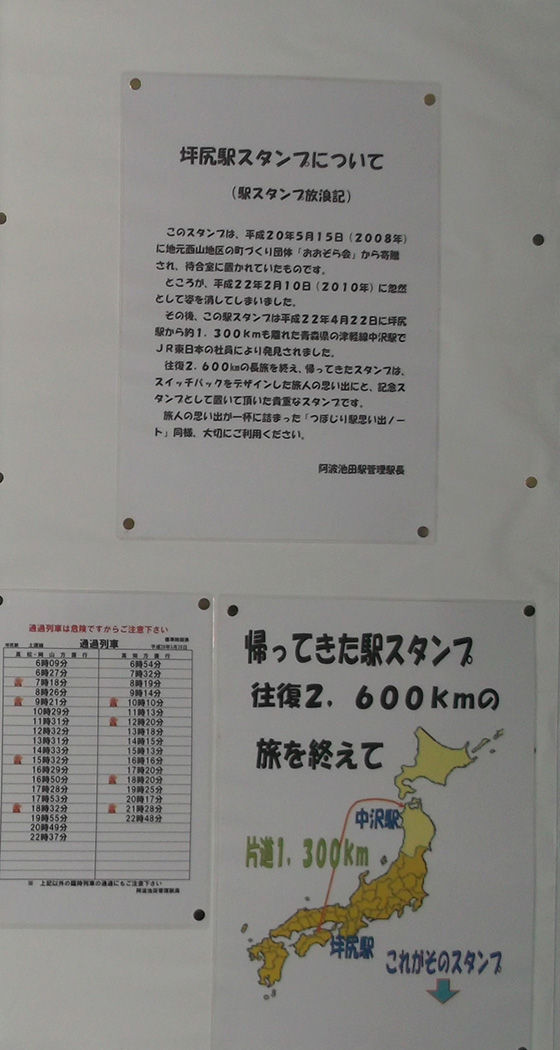 坪尻駅スタンプについて
(駅スタンプ放浪記)
このスタンプは、平成20年5月15日(2008年)
に地元西山地区の町づくり団体「おおぞら会」から寄贈
され、待合室に置かれていたものです。
ところが、平成22年2月10日(2010年)に忽然
として姿を消してしまいました。
その後、この駅スタンプは平成22年4月22日に坪尻
駅から約1.300kmも離れた青森県の津軽線中沢駅で
JR東日本の社員により発見されました。
往復2.600kmの長旅を終え、帰ってきたスタンプは、
スイッチバックをデザインした旅人の思い出にと、記念ス
タンプとして置いて頂いた貴重なスタンプです。
旅人の思い出が一杯に詰まった「つぼじり駅思い出ノー
ト」同様、大切にご利用ください。
阿波池田駅管理駅長
通過列車は危険ですからご注意下さい
坪尻駅 上運線 通過列車
高松・岡山方面行 高知方面行
6時09分 6時54分
6時27分 7時32分
7時18分 8時19分
8時26分 9時14分
9時21分 10時10分
10時29分 11時13分
11時31分 12時20分
12時32分 13時18分
13時31分 14時15分
14時33分 15時13分
15時32分 16時16分
16時29分 17時20分
16時50分 18時20分
17時28分 19時25分
17時53分 20時17分
18時32分 21時28分
19時55分 22時48分
20時49分
22時37分
※ 上記以外の臨時列車の通過にもご注意下さい
阿波池田管理駅長
帰ってきた駅スタンプ
往復2.600kmの
旅を終えて
中沢駅
片道1.300km
坪尻駅
これがそのスタンプ